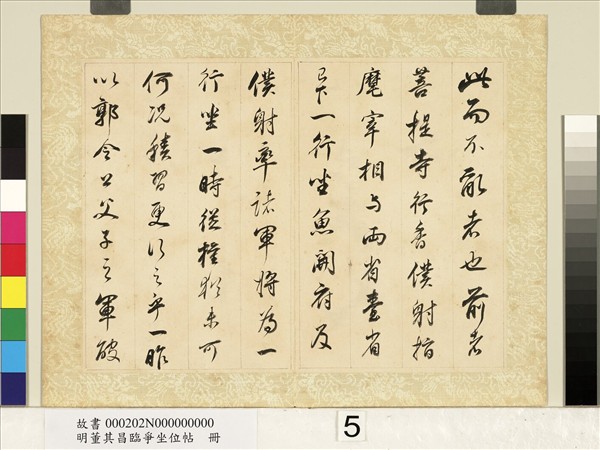 此而不能者也前者
菩提寺行香僕射指
麾宰相与兩省臺省
已下一行坐魚開府及
僕射率諸軍將為一
行坐一時從權猶未可
何況積習更行之乎一昨
以郭令公父子之軍破
故書 000202N000000000
明董其昌臨爭坐位帖 冊
5